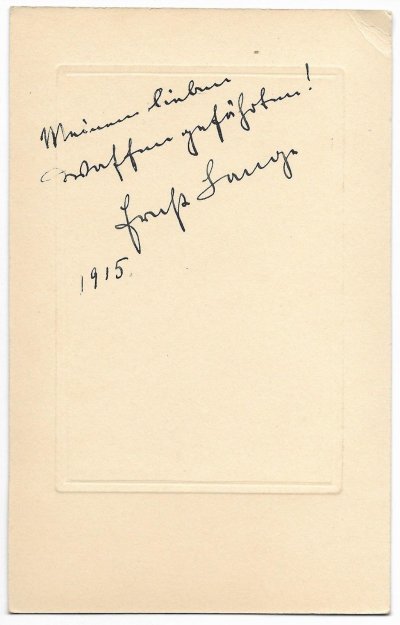 Meinem lieben
Waffengefährten!
Ernst Lange
1915.